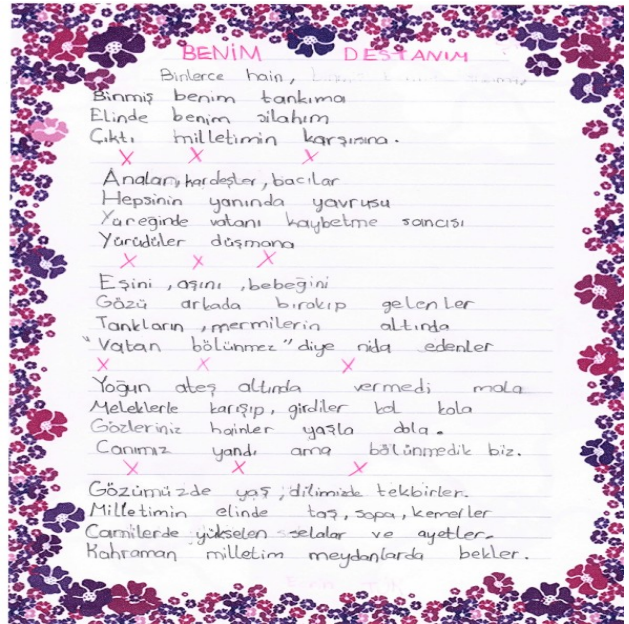 BENİM DESTANIM
Binlerce hain,
Binmiş benim tankıma
Elinde benim silahım
Çıktı milletimin karşısına.
x x x
Analar, kardeşler, bacılar
Hepsinin yanında yavrusu
Yüreğinde vatanı kaybetme sancısı
Yürüdüler düşmana
x x x
Eşini, aşını, bebeğini
Gözü arkada bırakıp gelenler
Tankların, mermilerin altında
"Vatan bölünmez" diye nida edenler
x x x
Yoğun ateş altında vermedi mola
Meleklerle karışıp, girdiler kol kola
Gözleriniz hainler yaşla dola.
Canımız yandı ama bölünmedik biz.
x x x
Gözümüzde yaş, dilimizde tekbirler.
Milletimin elinde taş, sopa, kemerler
Camilerde yükselen selalar ve ayetler.
Kahraman milletim meydanlarda bekler.